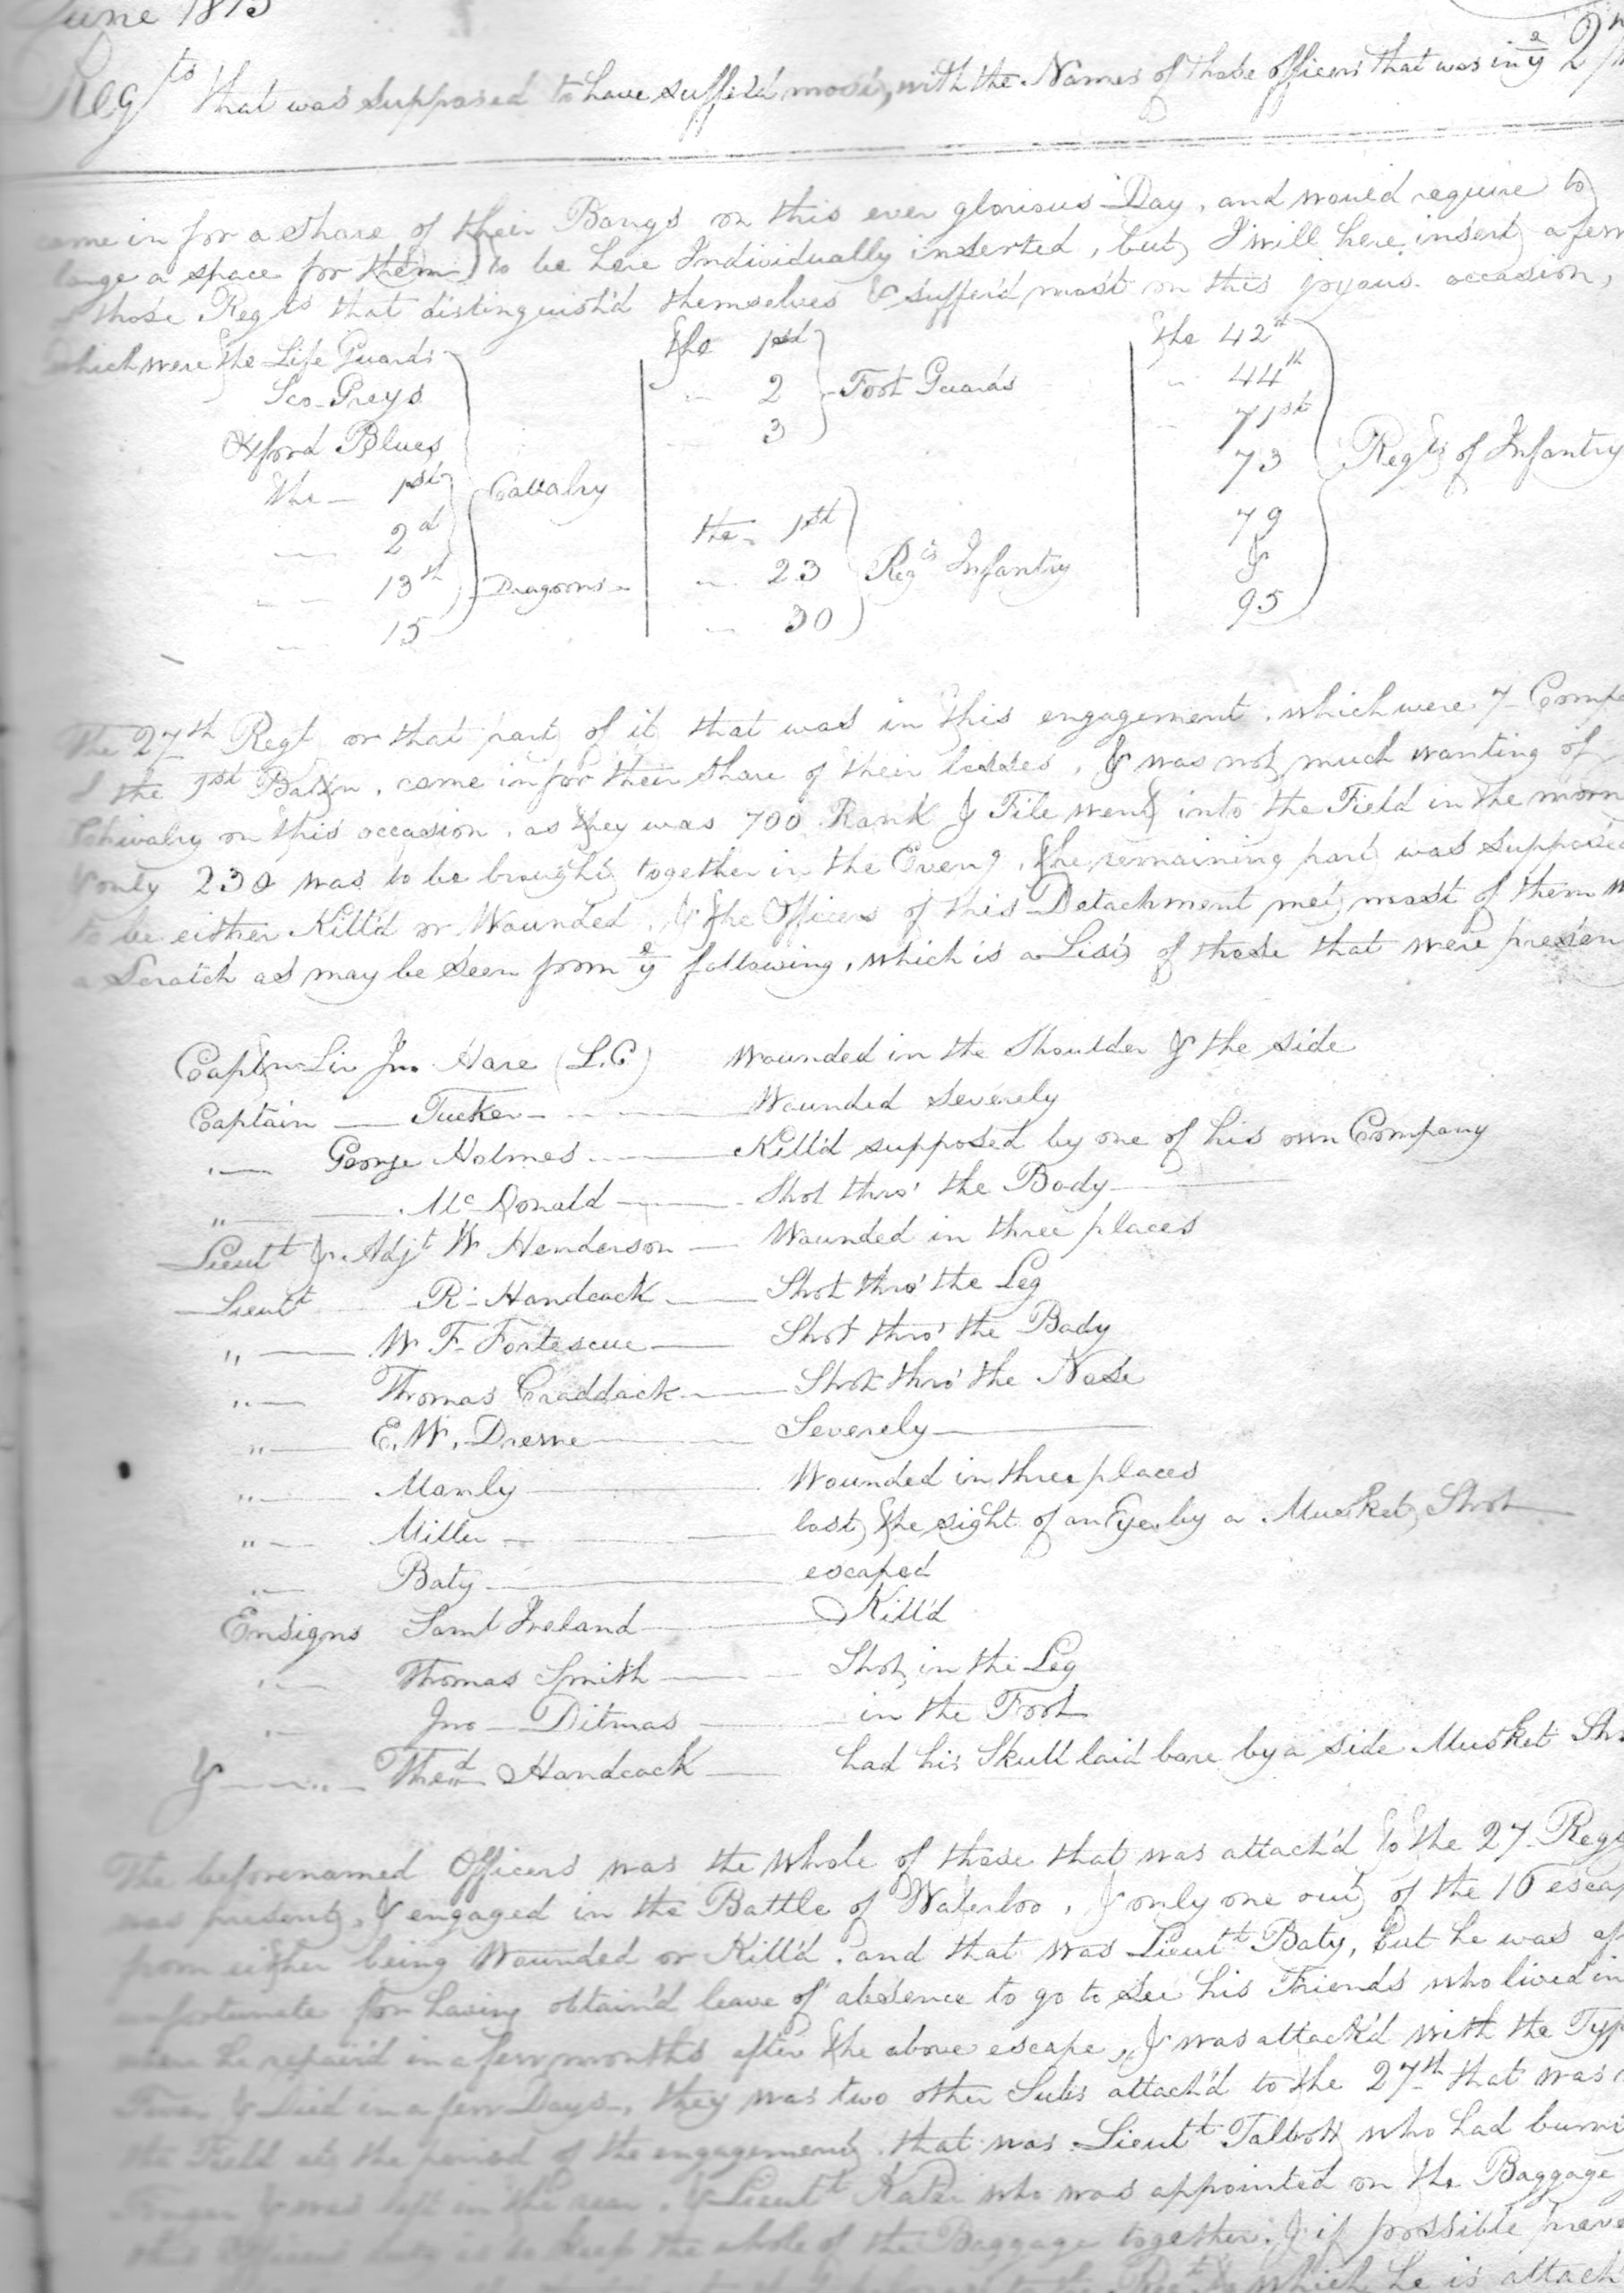 June 1815
Regts that was supposed to have suffer'd most, with the Names of those officers that was in ye 27th
came in for a share of their Bangs on this ever glorious Day, and would require to
large a space for them to be here Individually inserted, but I will here insert a few
of those Regts that distinguish'd themselves & suffer'd most on this joyous occasion,
which were the Life Guards
Sco. Greys
Oxford Blues
The 1st
2d
13th
15
Cavalry
Dragoons
the 1st
2
3
Foot Guards
the 1st
23
30
Regts Infantry
the 42d
44th
71st
73
79
&
95
Regts of Infantry
The 27th Regt or that part of it that was in this engagement, which were 7 Comp
of the 1st Battn, came in for their share of their losses, & was not much wanting of
Chivalry on this occasion, as they was 700 Rank & File went into the Field in the morn
& only 230 was to be brought together in the Eveng, the remaining part was supposed
to be either Kill'd or Wounded, & the Officers of this Detachment met most of them
a Scratch as may be seen from ye following, which is a List of those that were presen
Captn Sir Jno Hare (L.C) Wounded in the Shoulder & the side
Captain Tucker Wounded severely
" George Holmes Kill'd supposed by one of his own Company
" McDonald Shot thro' the Body
Lieutt & Adjt W Henderson Wounded in three places
Lieutt R. Handcock Shot thro' the Leg
" W F. Fortescue Shot thro' the Body
" Thomas Craddock Shot thro' the Nose
" E. W. Drewe Severely
" Manly Wounded in three places
" Miller lost the sight of an Eye by a Musket Shot
" Baty escaped
Ensigns Saml Ireland Kill'd
" Thomas Smith Shot in the Leg
" Jno Ditmas in the Foot
& " Thed Handcock had his Skull laid bare by a side Musket Sho
The beforenamed Officers was the whole of those that was attach'd to the 27 Regt
was present, & engaged in the Battle of Waterloo, & only one out of the 16 escap
from either being Wounded or Kill'd, and that was Lieutt Baty, but he was
unfortunate for having obtain'd leave of absence to go to see his Friends who lived in
where he repair'd in a few months after the above escape, & was attack'd with the Typ
Fever & Died in a few Days, they was two other Subs attach'd to the 27th that was
the Field at the period of the engagement, that was Lieutt Talbott who had
& was left in the rear, & Lieutt Kater who was appointed on the Baggage
this is to keep the whole of the Baggage together, & if possible preve
to the Regt to which he is attach